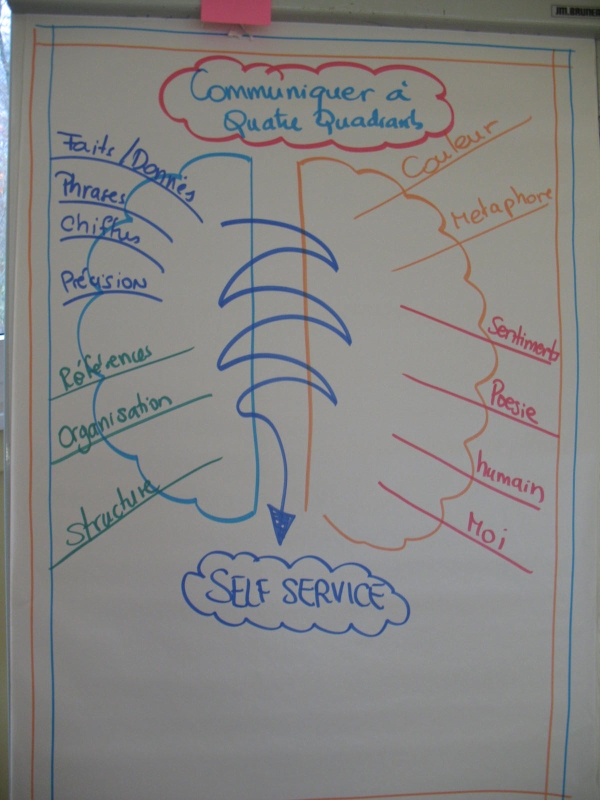 JM.BRUNEA
Communiquer à
Quatre Quadrants
Faits / Données
Phrases
Chiffres
Précision
Références
Organisation
Structure
Couleur
Metaphore
Sentiments
Poesie
humain
Moi
SELF SERVICE